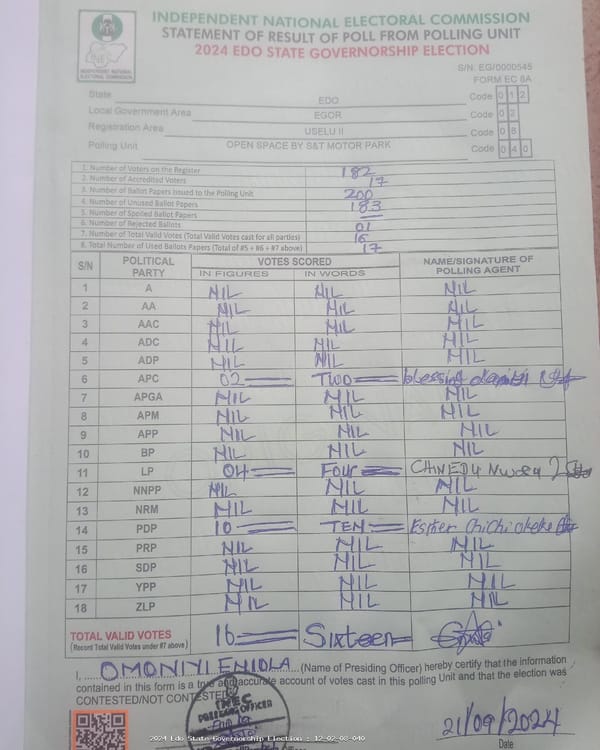 INDEPENDENT NATIONAL ELECTORAL COMMISSION
STATEMENT OF RESULT OF POLL FROM POLLING UNIT
2024 EDO STATE GOVERNORSHIP ELECTION
S/N: EG/0000545
FORM EC 8A
INDEPENDENT NATIONAL ELECTORAL COMMISSION
State EDO Code 0 1 2
Local Government Area EGOR Code 0 2
Registration Area USELU II Code 0 8
Polling Unit OPEN SPACE BY S&T MOTOR PARK Code 0 4 0
1. Number of Voters on the Register 182
2. Number of Accredited Voters 17
3. Number of Ballot Papers Issued to the Polling Unit 200
4. Number of Unused Ballot Papers 183
5. Number of Spoiled Ballot Papers —
6. Number of Rejected Ballots 01
7. Number of Total Valid Votes (Total Valid Votes cast for all parties) 16
8. Total Number of Used Ballots Papers (Total of #5 + #6 + #7 above) 17
S/N POLITICAL PARTY VOTES SCORED NAME/SIGNATURE OF POLLING AGENT
IN FIGURES IN WORDS
1 A NIL NIL NIL
2 AA NIL NIL NIL
3 AAC NIL NIL NIL
4 ADC NIL NIL NIL
5 ADP NIL NIL NIL
6 APC 02 TWO blessing
7 APGA NIL NIL NIL
8 APM NIL NIL NIL
9 APP NIL NIL NIL
10 BP NIL NIL NIL
11 LP 04 FOUR CHINEDU
12 NNPP NIL NIL NIL
13 NRM NIL NIL NIL
14 PDP 10 TEN Esther Chichi okeke
15 PRP NIL NIL NIL
16 SDP NIL NIL NIL
17 YPP NIL NIL NIL
18 ZLP NIL NIL NIL
TOTAL VALID VOTES 16 Sixteen
(Record Total Valid Votes under #7 above)
I, OMONIYI ENIOLA (Name of Presiding Officer) hereby certify that the information
contained in this form is a true and accurate account of votes cast in this polling Unit and that the election was
CONTESTED/NOT CONTESTED
INEC
PRESIDING OFFICER
21/09/2024
Date
2024 Edo State Governorship Election : 12-02-08-040